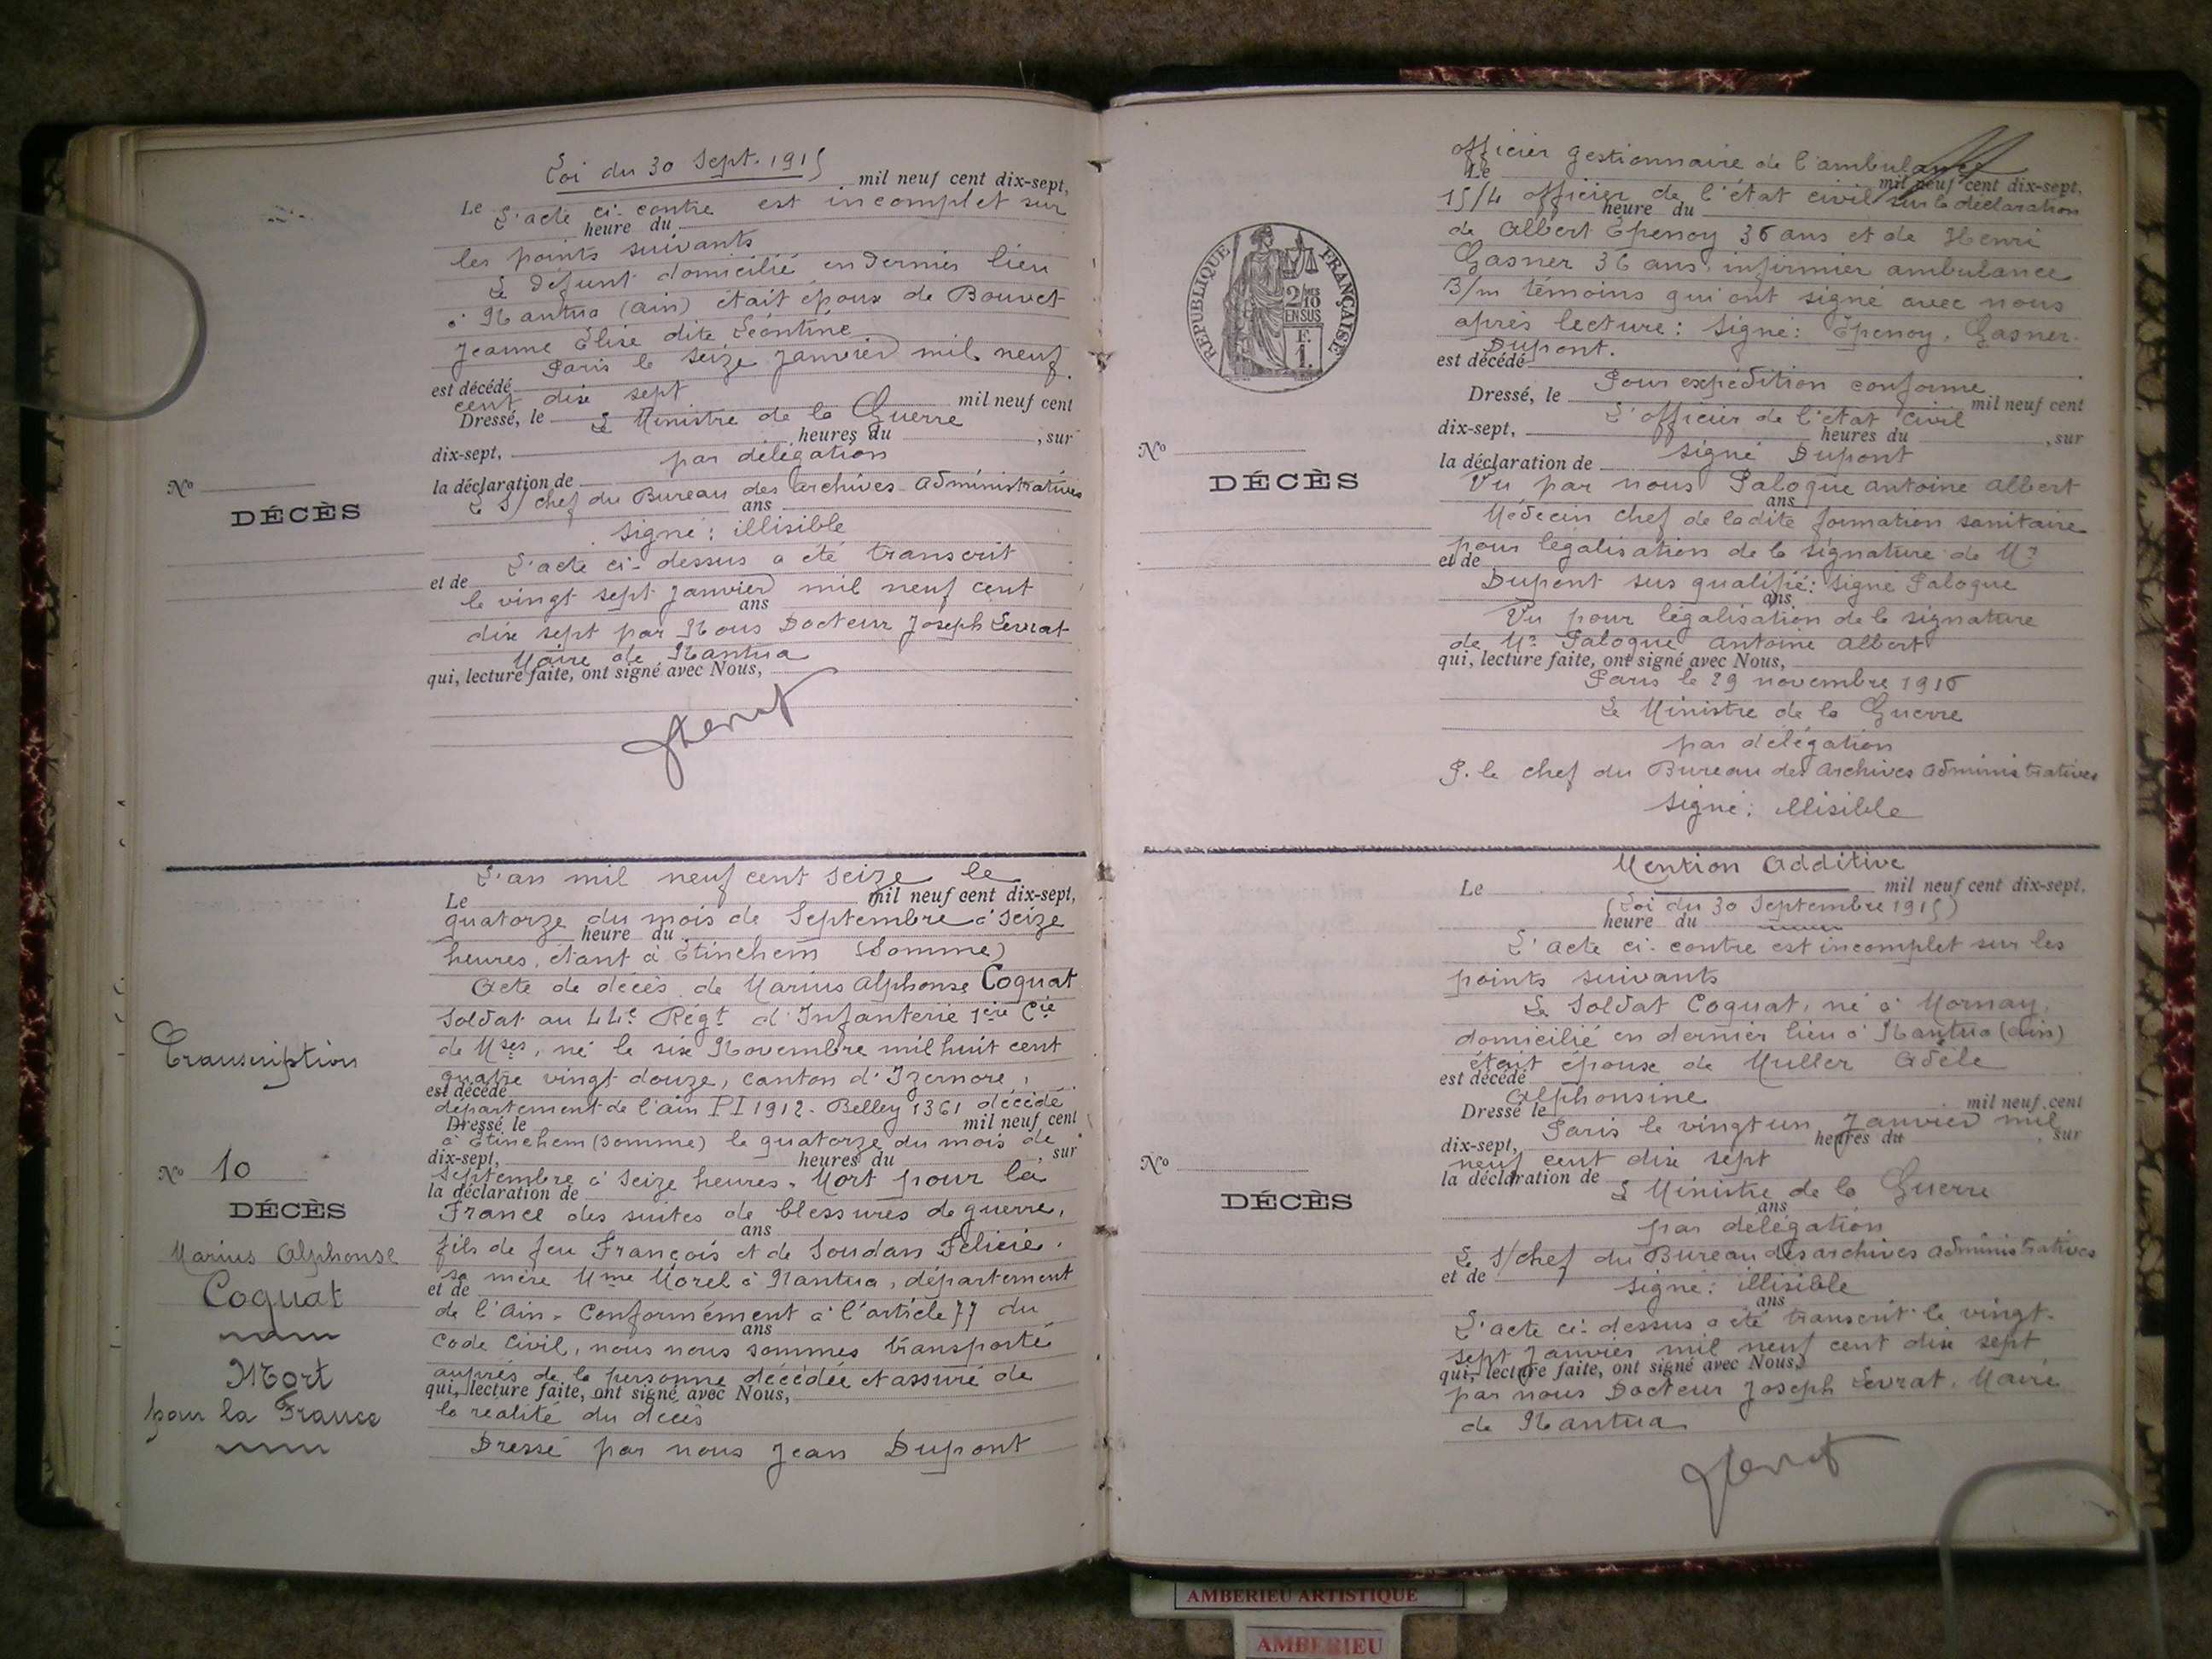 Loi du 30 Sept. 1915
mil neuf cent dix-sept,
Le L'acte ci-contre est incomplet sur
heure du
les points suivants
Le défunt domicilié en dernier lieu
à Nantua (Ain) était époux de Bouvet
Jeanne Elise dite Léontine
Paris le seize Janvier mil neuf
est décédé
cent dix sept
mil neuf cent
Dressé, le Le Ministre de la Guerre
heures du , sur
dix-sept, par délégation
la déclaration de
Le S/chef du Bureau des archives Administratives
ans
signé : illisible
L'acte ci-dessus a été transcrit
et de
le vingt sept Janvier mil neuf cent
ans
dix sept par Nous Docteur Joseph Levrat
Maire de Nantua
qui, lecture faite, ont signé avec Nous,
JLevrat
No
DÉCÈS
L'an mil neuf cent seize le
Le mil neuf cent dix-sept,
quatorze du mois de Septembre à seize
heure du
heures, étant à Etinehem (Somme)
Acte de décès de Marius Alphonse Coquat
Soldat au 44e Régt d'Infanterie 1ère Cie
de Mses, né le six Novembre mil huit cent
quatre vingt douze, canton d'Izernore,
est décédé
département de l'ain PI 1912 - Belley 1361 décédé
Dressé le mil neuf cent
à Etinehem (Somme) le quatorze du mois de
dix-sept, heures du , sur
Septembre à seize heures - Mort pour la
la déclaration de
France des suites de blessures de guerre,
ans
fils de feu François et de Soudan Félicie.
sa mère Mme Morel à Nantua, département
et de
de l'Ain - Conformément à l'article 77 du
ans
Code Civil, nous nous sommes transporté
auprès de la personne décédée et assuré de
qui, lecture faite, ont signé avec Nous,
la réalité du décès
Dressé par nous Jean Dupont
Transcription
No 10
DÉCÈS
Marius Alphonse
Coquat
Mort
pour la France
officier gestionnaire de l'ambulance
Le mil neuf cent dix-sept.
15/4 officier de l'état civil sur la déclaration
heure du
de Albert Epenoy 36 ans et de Henri
Gasner 36 ans, infirmier ambulance
B/m témoins qui ont signé avec nous
après lecture : Signé : Epenoy. Gasner.
Dupont.
est décédé
Pour expédition conforme
Dressé, le mil neuf cent
L'officier de l'état civil
dix-sept, heures du , sur
signé Dupont
la déclaration de
Vu par nous Paloque Antoine Albert
ans
Médecin chef de ladite formation sanitaire
pour légalisation de la signature de Mr
et de
Dupont sus qualifié : signé Paloque
ans
Vu pour légalisation de la signature
de Mr Paloque Antoine Albert
qui, lecture faite, ont signé avec Nous,
Paris le 29 novembre 1916
Le Ministre de la Guerre
par délégation
P. le chef du Bureau des Archives Administratives
signé : illisible
RÉPUBLIQUE FRANÇAISE
2/10 EN SUS
F.
1.
No
DÉCÈS
Mention Additive
Le mil neuf cent dix-sept.
(Loi du 30 Septembre 1915)
heure du
L'acte ci-contre est incomplet sur les
points suivants
Le Soldat Coquat, né à Mornay,
domicilié en dernier lieu à Nantua (Ain)
était épouse de Muller Adèle
est décédé
Alphonsine
Dressé le mil neuf cent
Paris le vingt un Janvier mil
dix-sept, heures du , sur
neuf cent dix sept
la déclaration de
Le Ministre de la Guerre
ans
par délégation
Le S/chef du Bureau des archives administratives
et de
signé : illisible
ans
L'acte ci-dessus a été transcrit le vingt-
sept Janvier mil neuf cent dix sept
qui, lecture faite, ont signé avec Nous,
par nous Docteur Joseph Levrat, Maire
de Nantua
JLevrat
No
DÉCÈS
AMBERIEU ARTISTIQUE
AMBERIEU